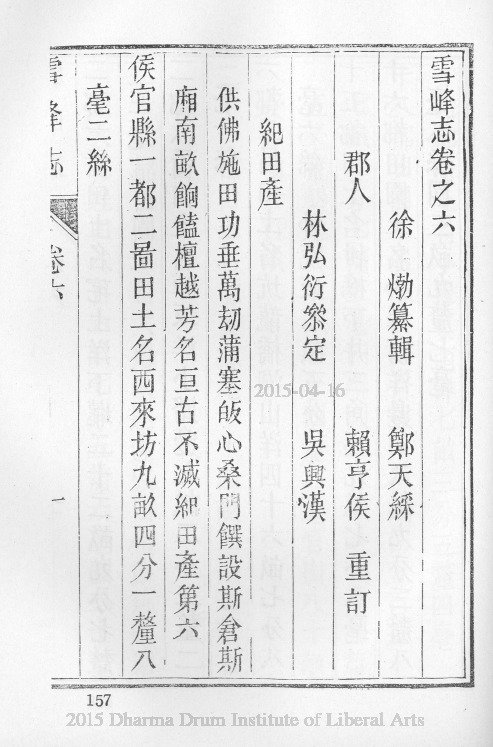 雪峰志卷之六
徐𤊹纂輯 鄭天綵
郡人 賴亨侯 重訂
林弘衍叅定 吳興漢
紀田產
供佛施田功垂萬刼蒲塞皈心桑門饌設斯倉斯
廂南畝餉饁檀越芳名亘古不滅紀田產第六
侯官縣一都二啚田土名西來坊九畝四分一釐八
毫二絲
雪峰志 卷六 一
157
2015-04-16
2015 Dharma Drum Institute of Liberal Arts